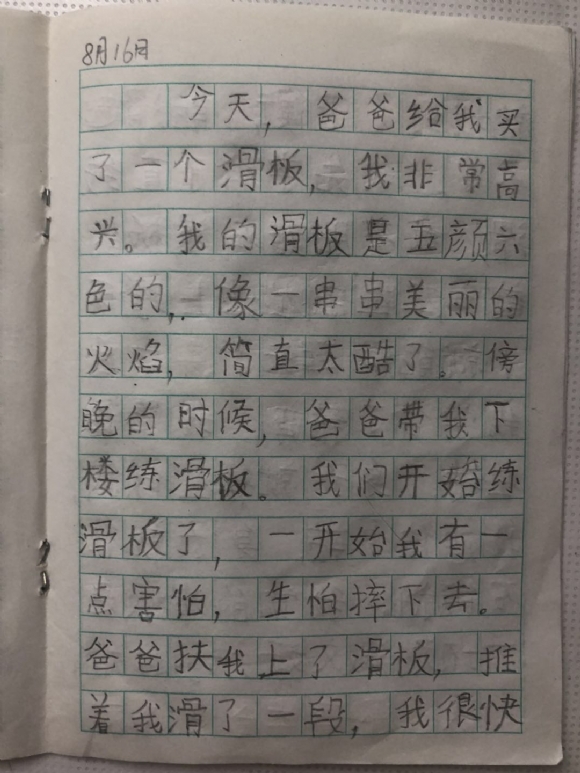 8月16日
今天，爸爸给我买
了一个滑板，我非常高
兴。我的滑板是五颜六
色的，像一串串美丽的
火焰，简直太酷了。傍
晚的时候，爸爸带我下
楼练滑板。我们开始练
滑板了，一开始我有一
点害怕，生怕摔下去。
爸爸扶我上了滑板，推
着我滑了一段，我很快